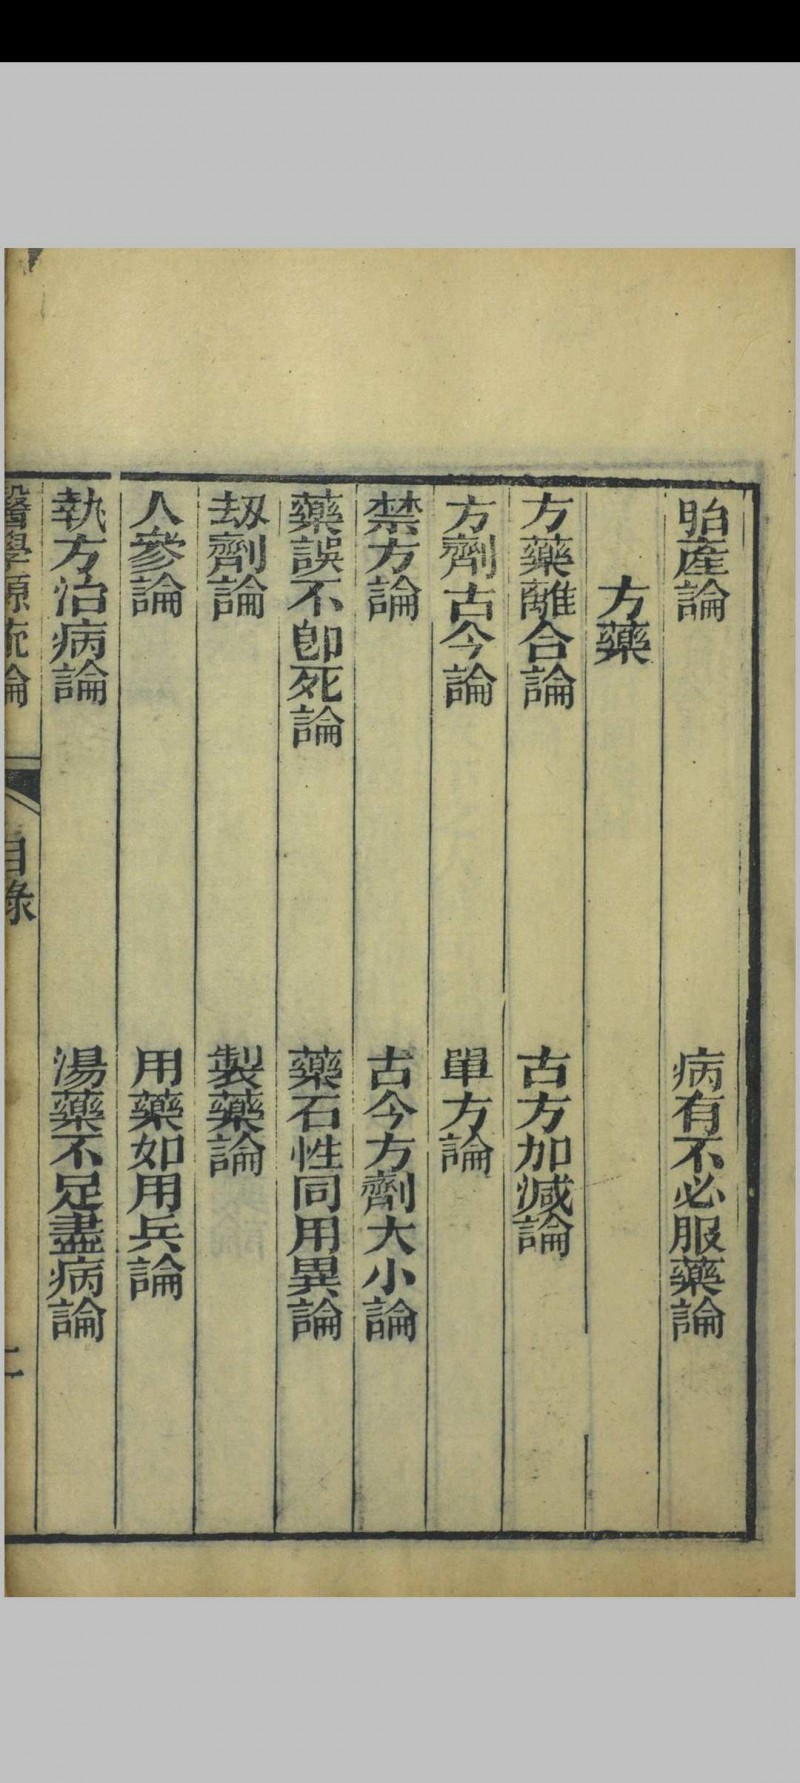 胎產論　病有不必服藥論
方藥
方藥離合論　古方加減論
方劑古今論　單方論
禁方論　古今方劑大小論
藥誤不卽死論　藥石性同用異論
劫劑論　製藥論
人參論　用藥如用兵論
執方治病論　湯藥不足盡病論
醫學源流論　目錄